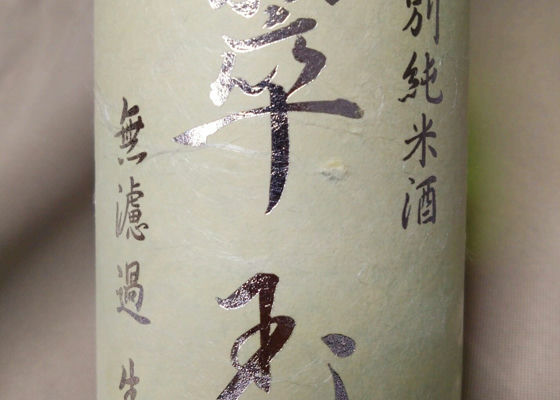 別純米酒
翠玉
無濾過生